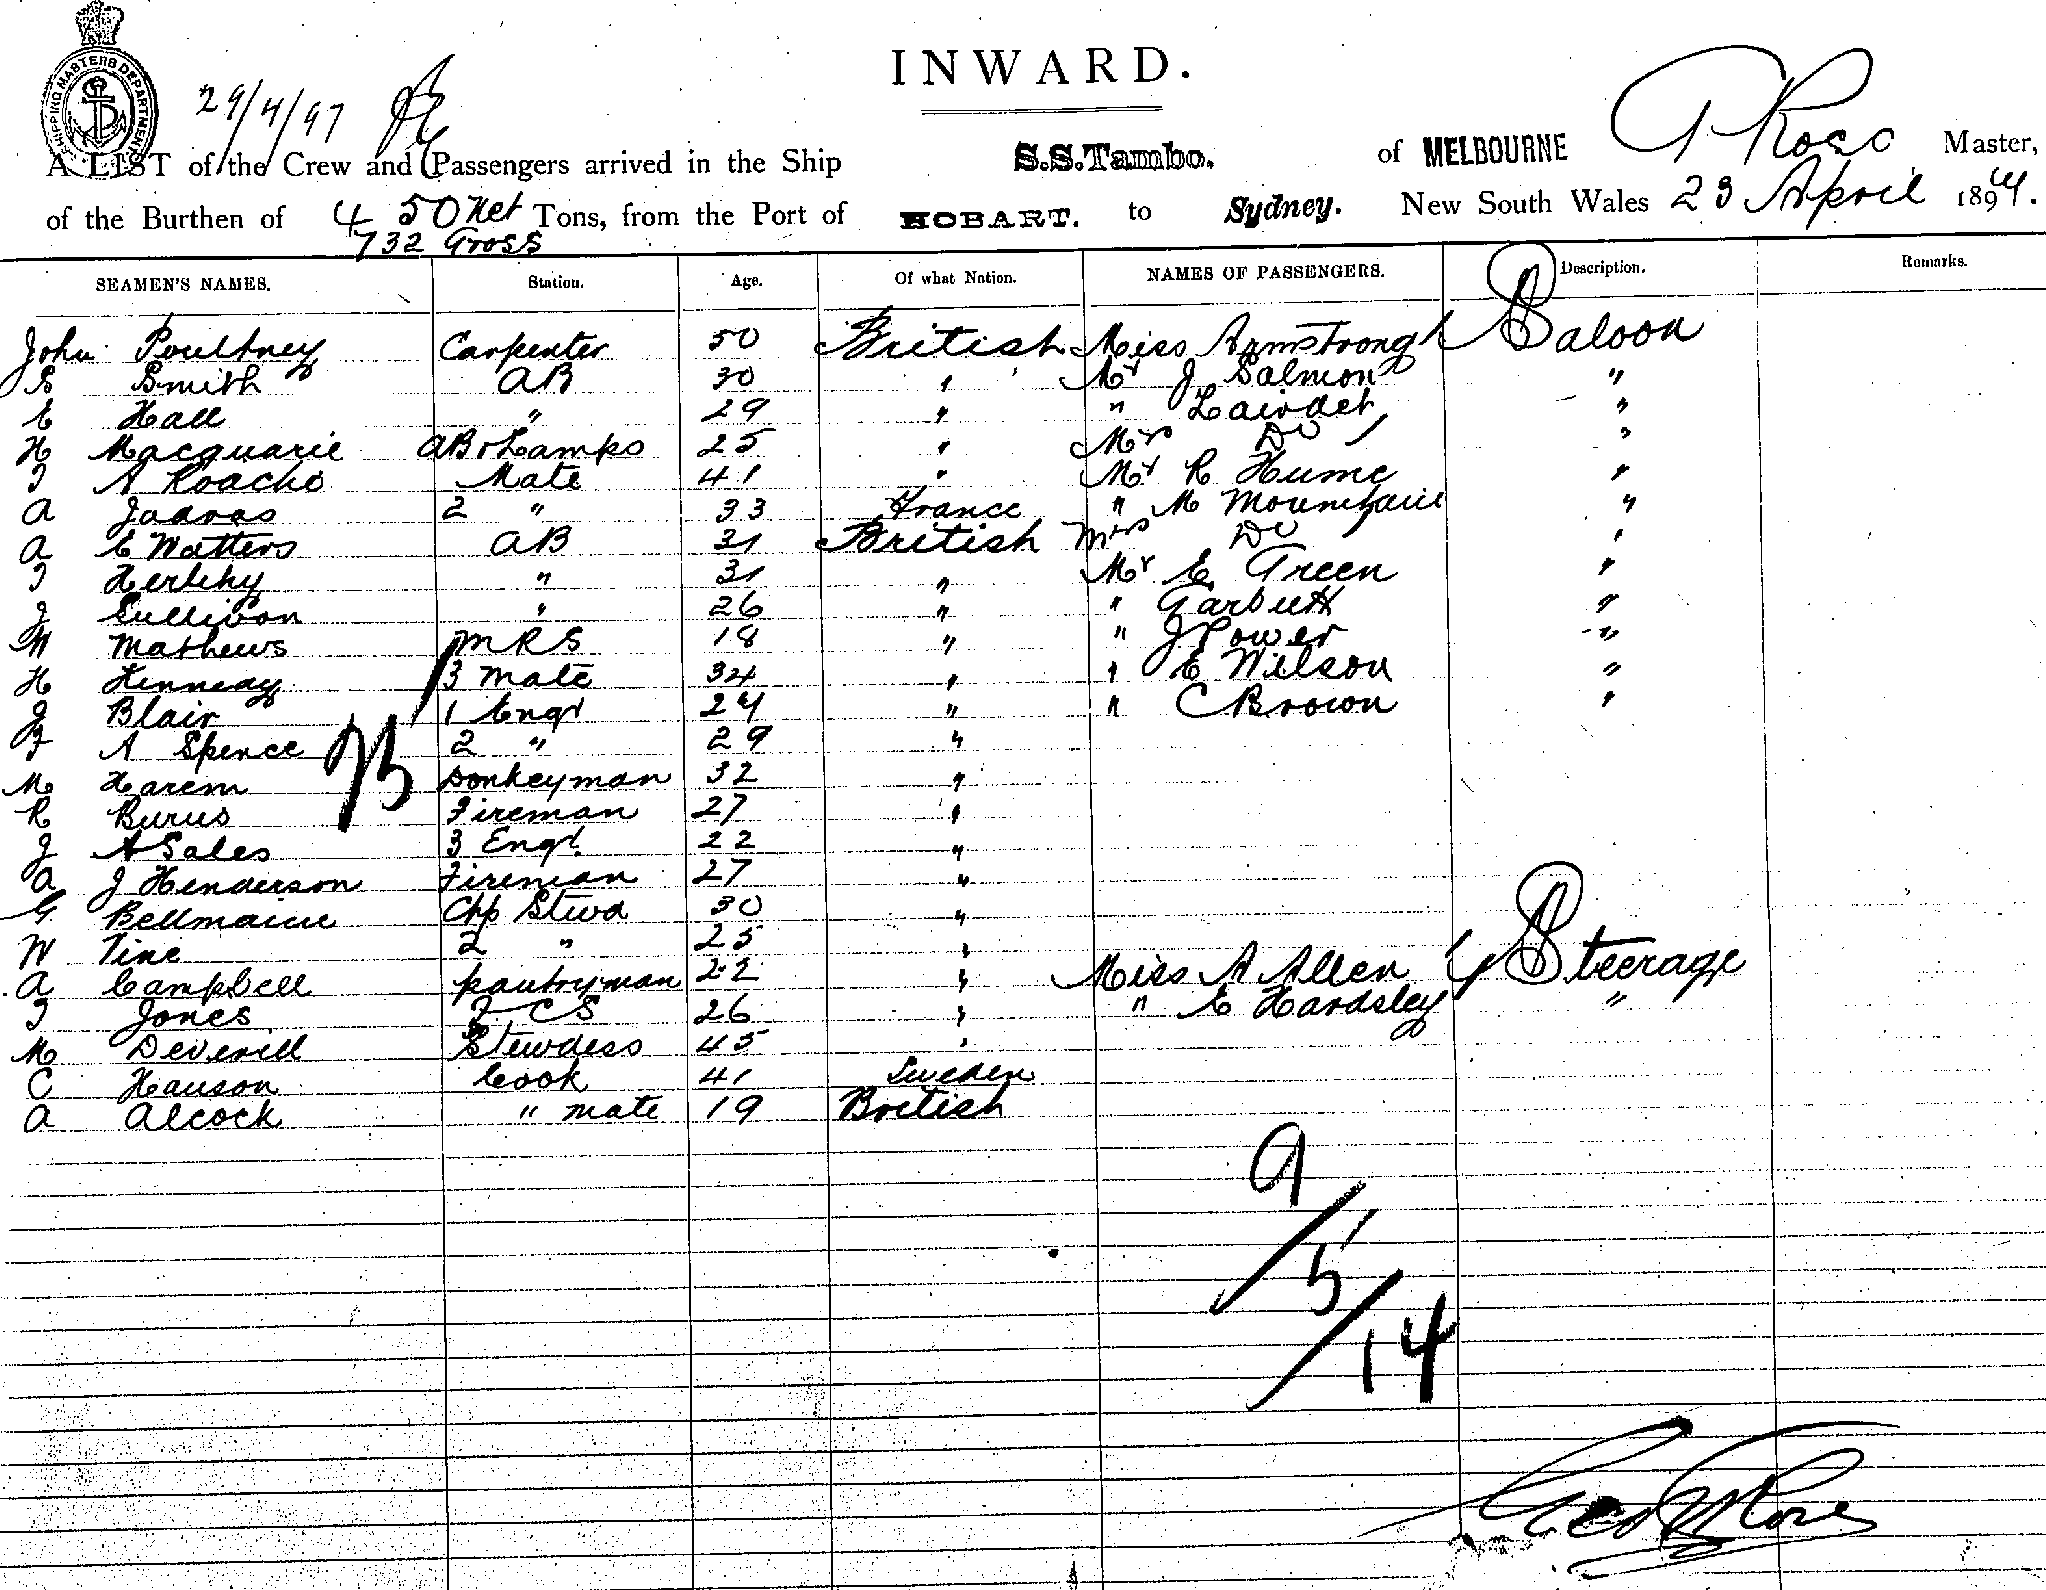 INWARD.
SHIPPING MASTERS DEPARTMENT
29/4/97
A LIST of the Crew and Passengers arrived in the Ship S.S. Tambo. of MELBOURNE G Ross Master,
of the Burthen of 450 Net Tons, from the Port of HOBART. to Sydney. New South Wales 23 April 1897.
732 Gross
SEAMEN'S NAMES. Station. Age. Of what Nation. NAMES OF PASSENGERS. Description. Remarks.
John Poultney Carpenter 50 British Miss Armstrong Saloon
S Smith AB 30 " Mr J Salmon "
E Hall " 29 " " Lairdet "
H Macquarie AB & Lamps 25 " Mrs Do "
T A Roache Mate 41 " Mr R Hume "
A 2 " 33 France " M "
A E Watters AB 31 British Mrs Do "
T Herlihy " 31 " Mr E Green "
J Sullivan " 26 " " Garbutt "
W Mathews MRS 18 " " J Power "
H Kenneay 3 Mate 34 " " E Wilson "
J Blair 1 Engr 24 " " C Brown "
J A Spence 2 " 29 "
M Harem Donkeyman 32 "
R Burns Fireman 27 "
J A Sales 3 Engr. 22 "
A J Henderson Fireman 27 "
G. Bellmaine Chf Stewd 30 "
W Tine 2 " 25 "
A Campbell pantryman 22 " Miss A Allen Steerage
T Jones F C S 26 " " E Hardsley "
M Deverill Stewdess 45 "
C Hanson Cook 41 Sweden
A Alcock " mate 19 British
9/5/14